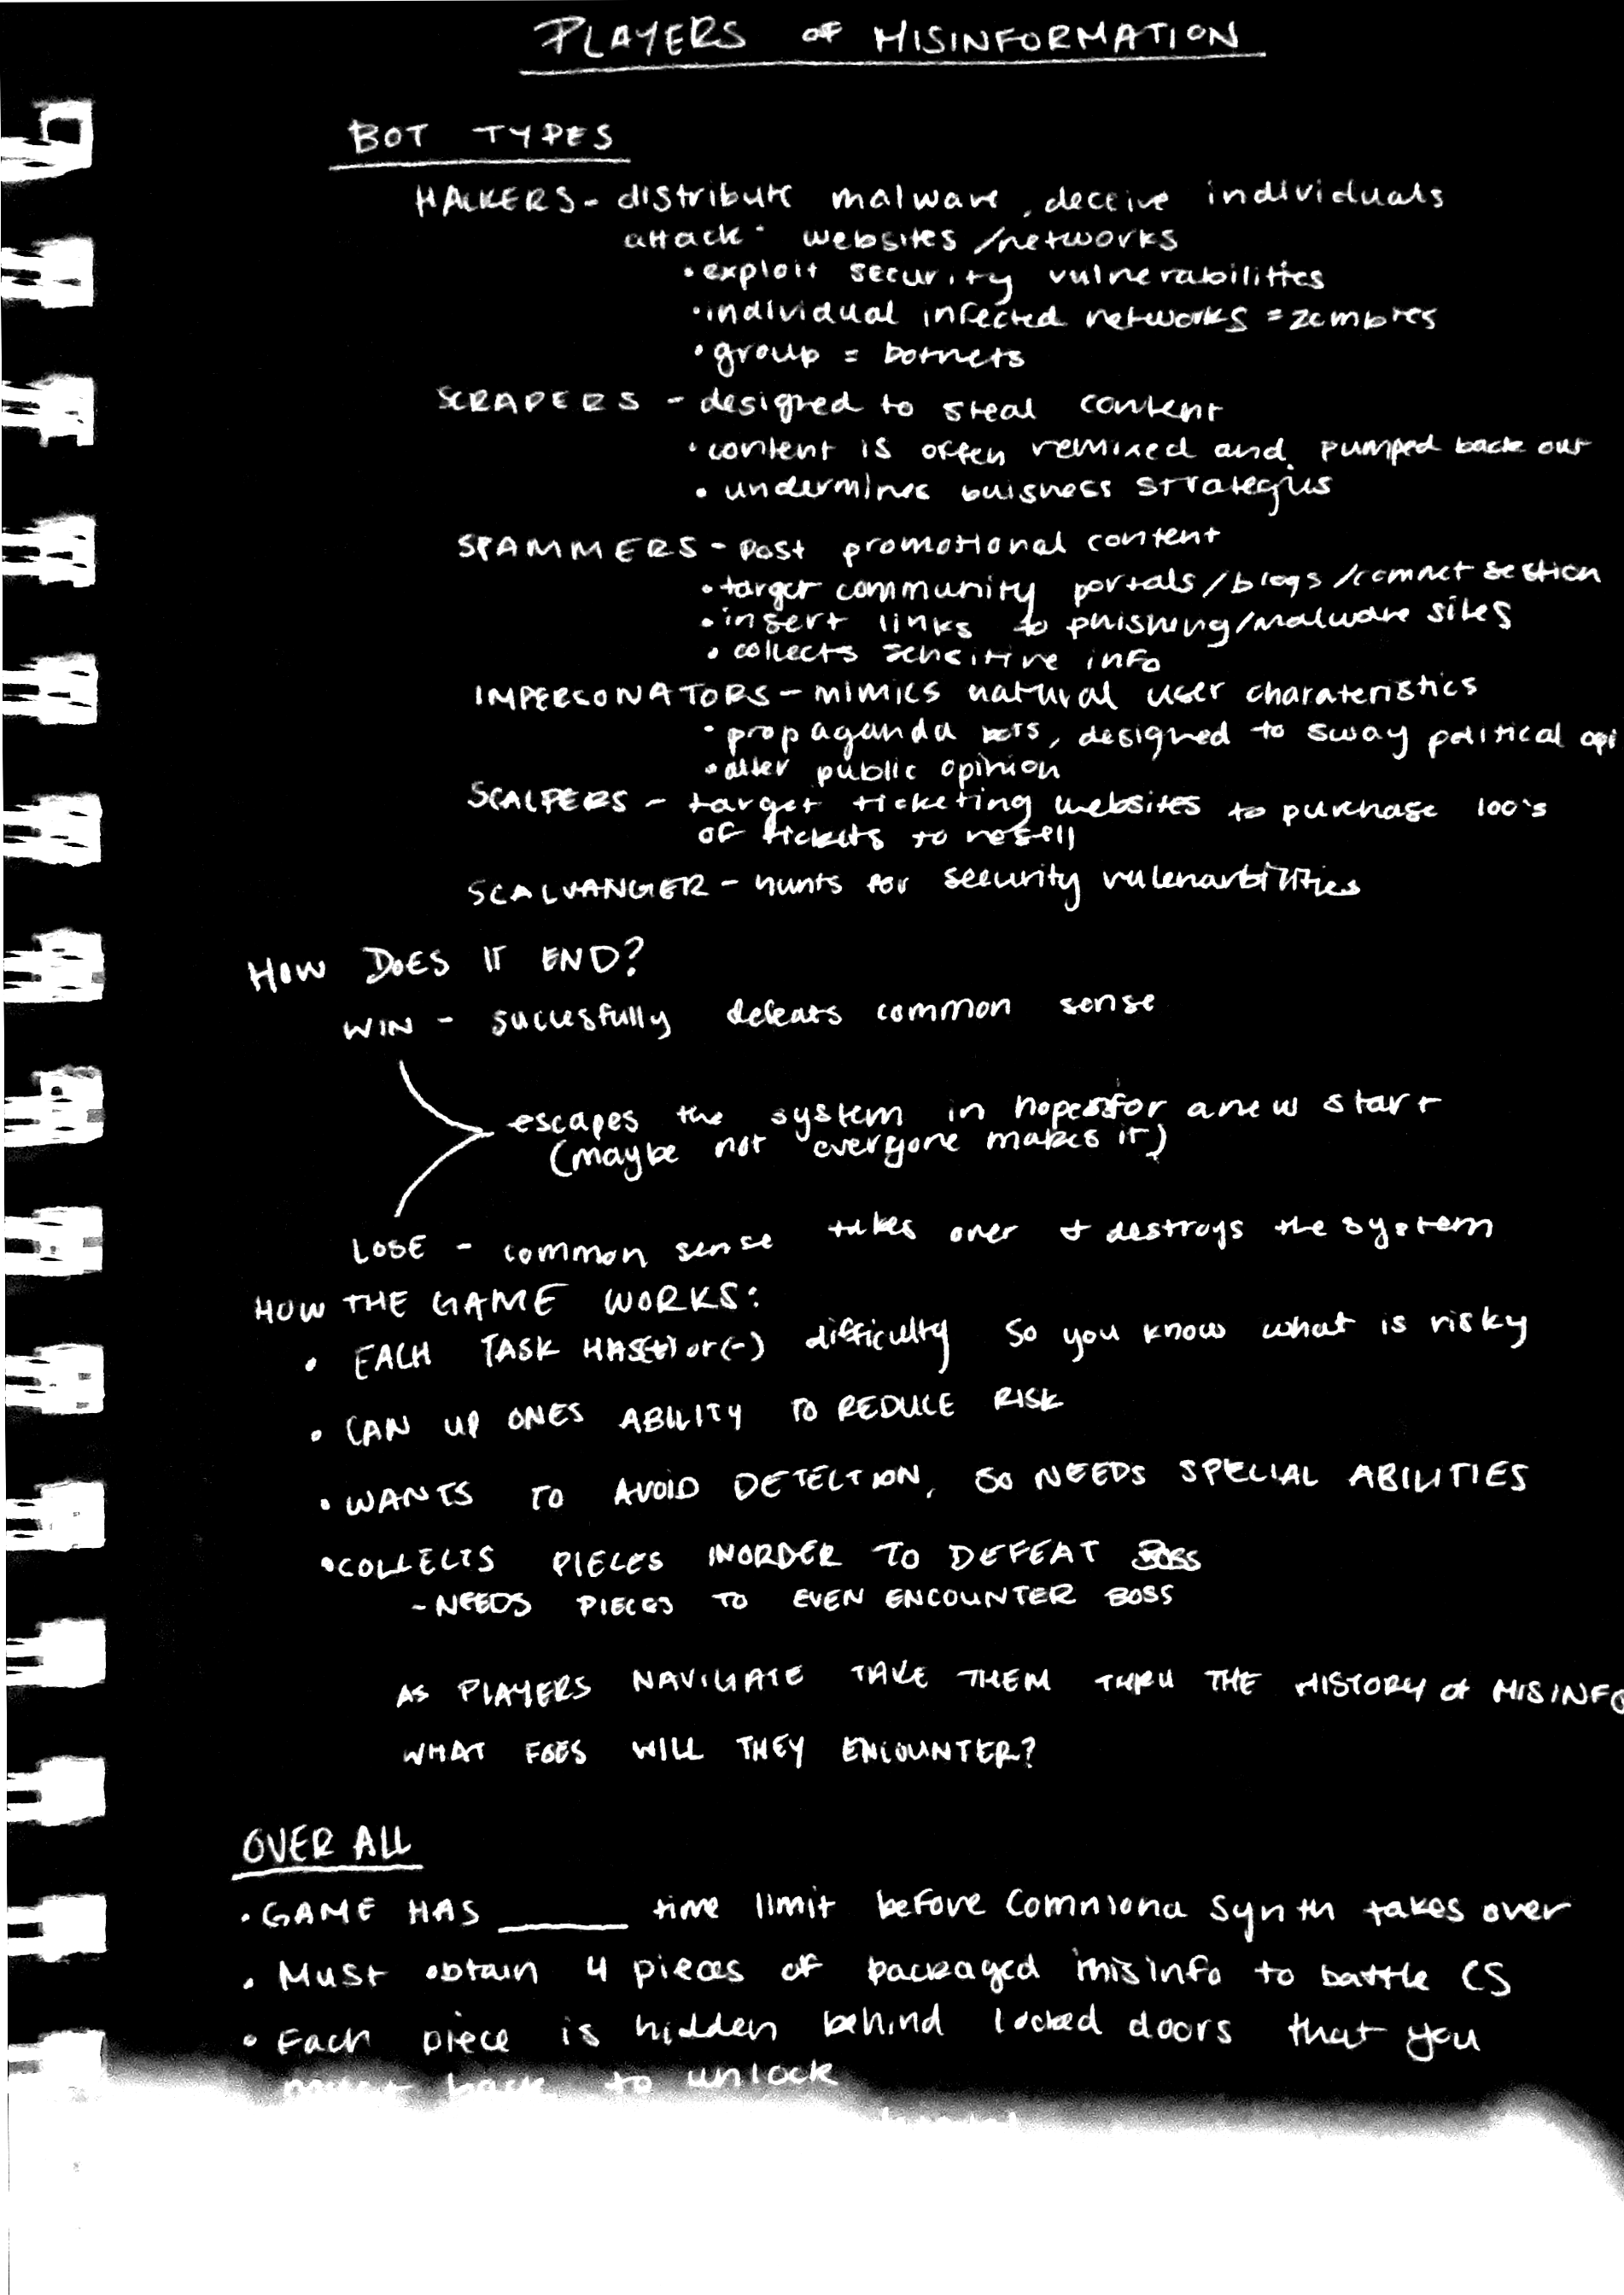 PLAYERS OF MISINFORMATION
BOT TYPES
HACKERS - distribute malware, deceive individuals
attack websites/networks
• exploit security vulnerabilities
• individual infected networks = zombies
• group = botnets
SCRAPERS - designed to steal content
• content is often remixed and pumped back out
• undermines buisness strategies
SPAMMERS - post promotional content
• target community portals/blogs/comnet section
• insert links to phishing/malware sites
• collects sensitive info
IMPERSONATORS - mimics natural user charateristics
• propaganda bots, designed to sway political opi
• alter public opinion
SCALPERS - target ticketing websites to purchase 100's
of tickets to resell
SCALVANGER - hunts for security vulenarbilities
HOW DOES IT END?
WIN - succesfully defeats common sense
escapes the system in hopes for a new start
(maybe not everyone makes it)
LOSE - common sense takes over + destroys the system
HOW THE GAME WORKS:
• EACH TASK HAS (+) or (-) difficulty so you know what is risky
• CAN UP ONES ABILITY TO REDUCE RISK
• WANTS TO AVOID DETECTION, SO NEEDS SPECIAL ABILITIES
• COLLECTS PIECES INORDER TO DEFEAT BOSS
- NEEDS PIECES TO EVEN ENCOUNTER BOSS
AS PLAYERS NAVIGATE TAKE THEM THRU THE HISTORY of MISINFO
WHAT FOES WILL THEY ENCOUNTER?
OVER ALL
• GAME HAS ______ time limit before Comniona Synth takes over
• Must obtain 4 pieces of packaged misinfo to battle CS
• Each piece is hidden behind locked doors that you
to unlock